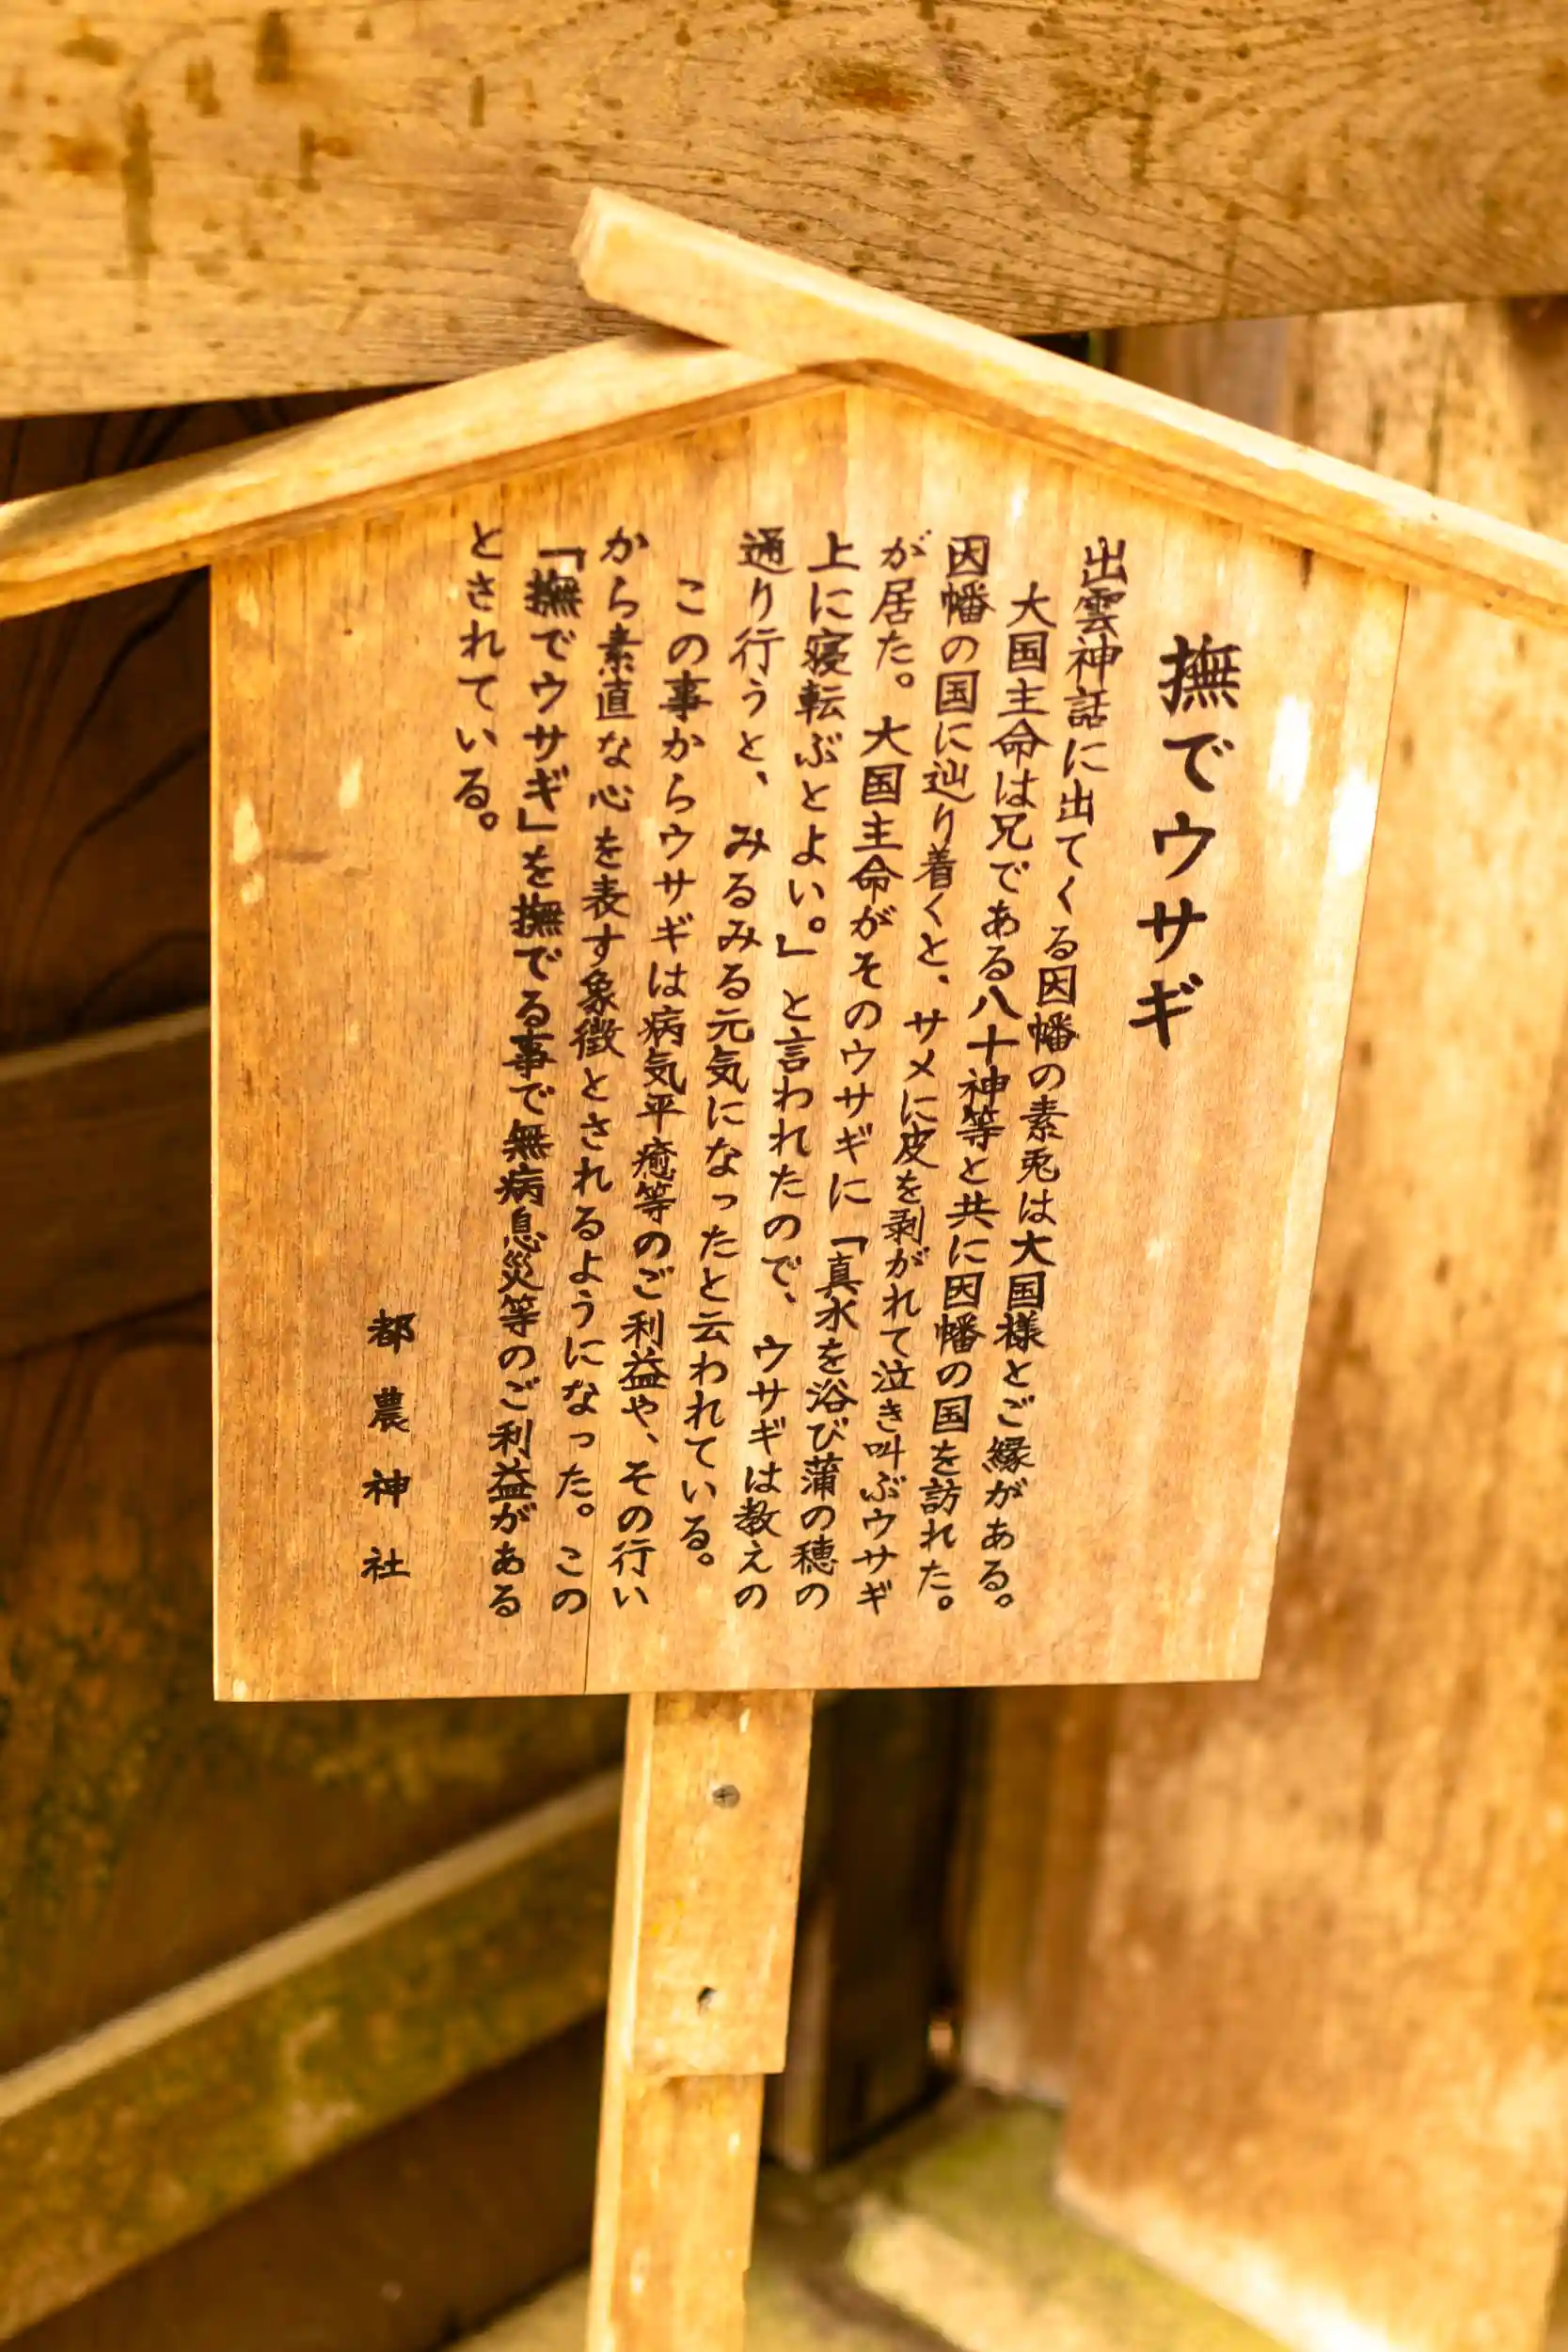 撫でウサギ
出雲神話に出てくる因幡の素兎は大国様とご縁がある。
大国主命は兄である八十神等と共に因幡の国を訪れた。
因幡の国に辿り着くと、サメに皮を剥がれて泣き叫ぶウサギ
が居た。大国主命がそのウサギに「真水を浴び蒲の穂の
上に寝転ぶとよい。」と言われたので、ウサギは教えの
通り行うと、みるみる元気になったと云われている。
この事からウサギは病気平癒等のご利益や、その行い
から素直な心を表す象徴とされるようになった。この
「撫でウサギ」を撫でる事で無病息災等のご利益がある
とされている。
都農神社